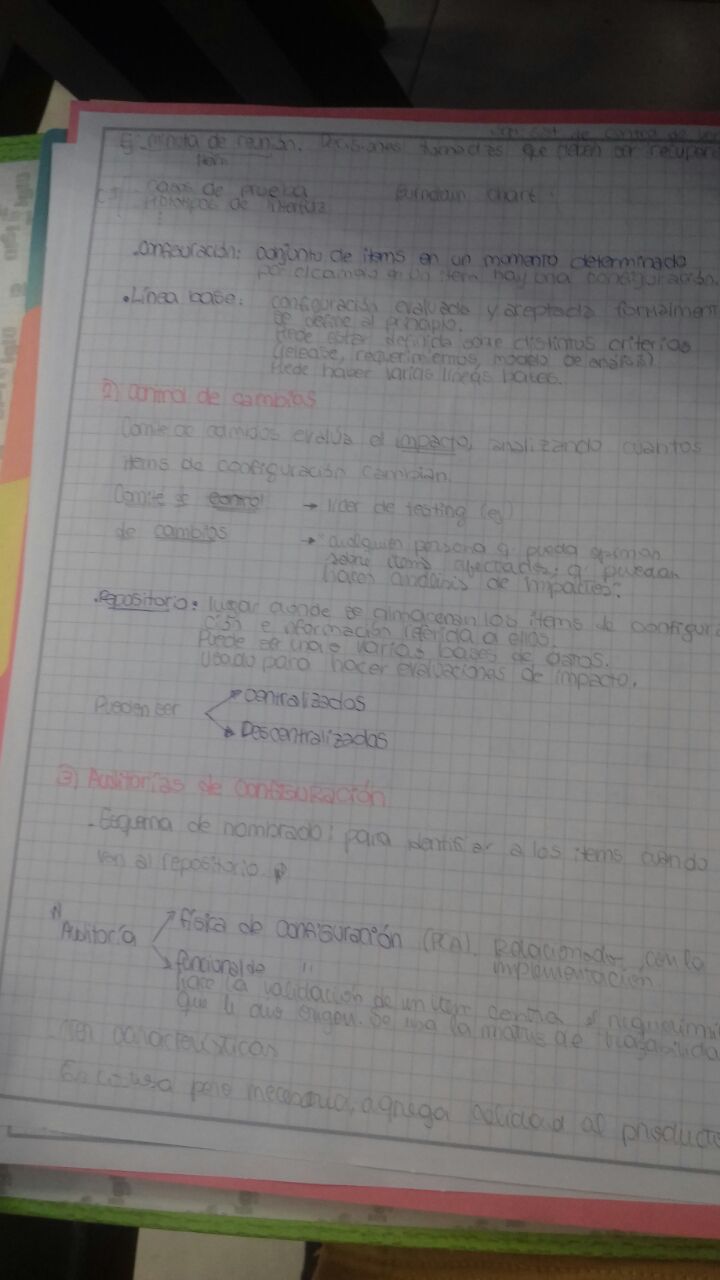 Ej: minuta de reunión. Decisiones tomadas que deben ser recuper
item
casos de prueba burndown chart
prototipos de interfaz
Configuración: conjunto de items en un momento determinado
por c/cambio q' un item hay una configuración.
• Línea base: configuración evaluada y aceptada formalmen
Se define al principio.
Puede estar definida sobre distintos criterios
(release, requerimientos, modelo de análisis)
Puede haber varias líneas bases.
2) Control de cambios
Comité de cambios evalúa el impacto, analizando cuantos
items de configuración cambian.
Comité de control → líder de testing (ej)
de cambios → "cualquier persona q' pueda opinar
sobre items afectados, q' puedan
hacer análisis de impactos".
• Repositorio: lugar donde se almacenan los items de configura
(CS) e información referida a ellos.
Puede ser una o varias bases de datos.
Usado para hacer evaluaciones de impacto.
Pueden ser centralizados
Descentralizados
3) Auditorías de configuración
• Esquema de nombrado: para identificar a los items cuando
van al repositorio
Auditoría física de configuración (PCA). Relacionado con la
implementación
funcional de "
hace la validación de un item contra el requerimi
que le dio origen. Se usa la matriz de trazabilida
características
Es costosa pero necesaria, agrega calidad al product